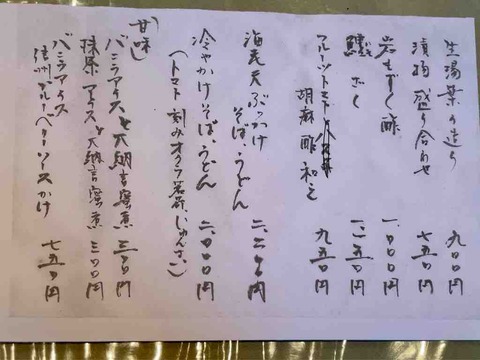 生湯葉の造り 九〇〇円
漬物盛り合わせ 七五〇円
岩もずく酢 一、〇〇〇円
鱧 一、二五〇円
フルーツトマト 胡麻酢和え 九五〇円
海老天ぶっかけそば、うどん 二、二〇〇円
冷やかけそば、うどん 二、〇〇〇円
(トマト 刻みオクラ 若芽 じゅんさい)
甘味
バニラアイスと大納言蜜煮
抹茶アイスと大納言蜜煮
バニラアイス
信州ブルーベリーソースかけ 七五〇円